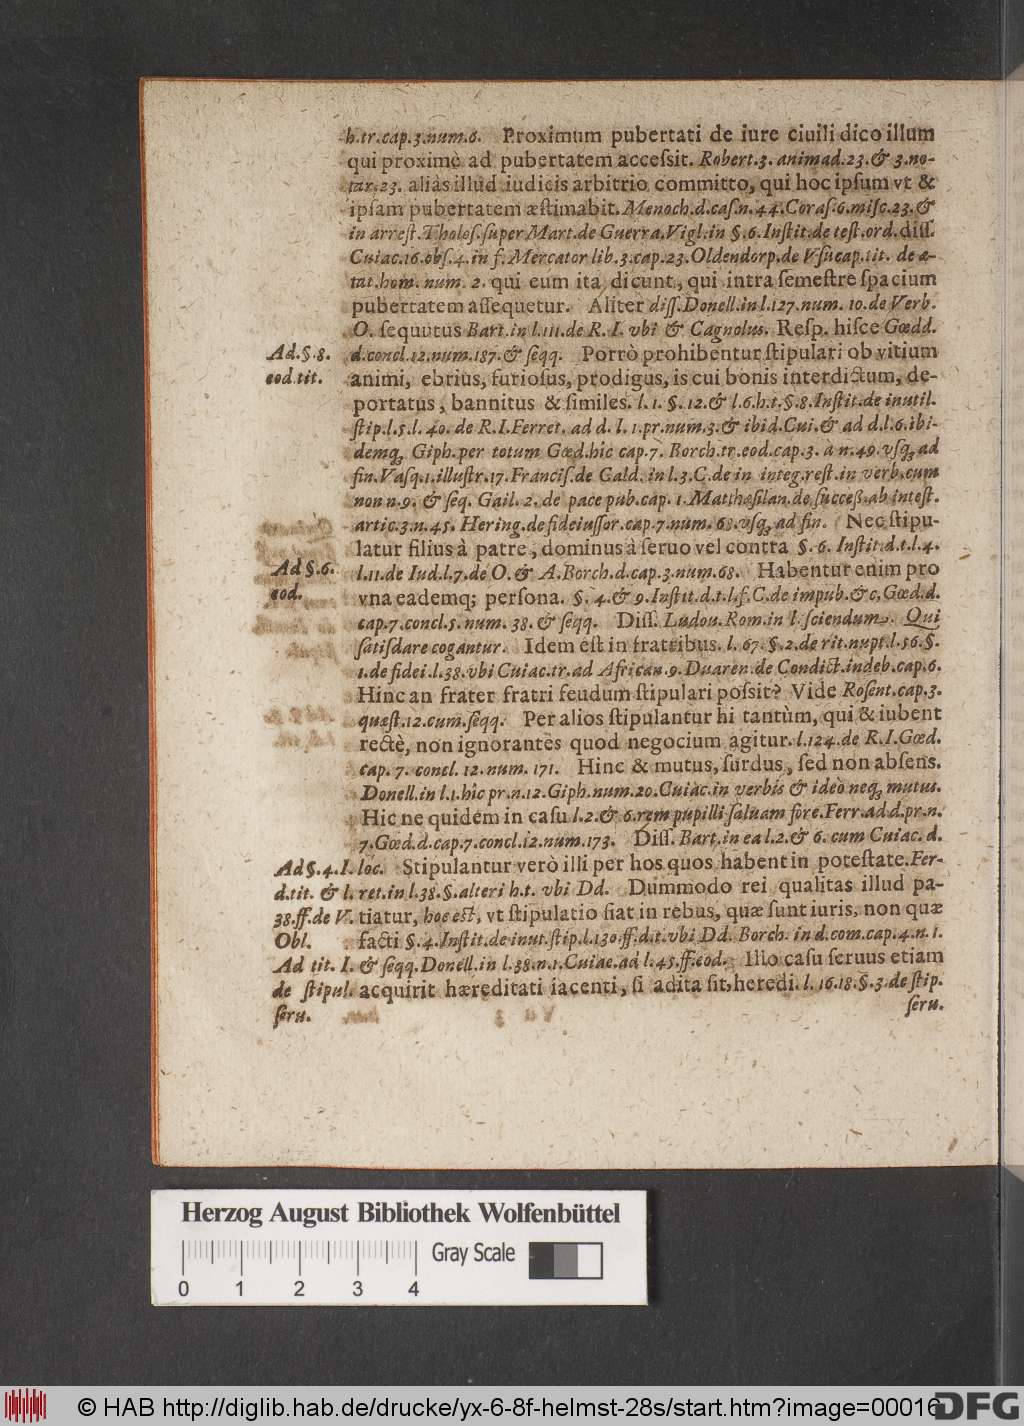 h.tr.cap.3.num.6. Proximum pubertati de iure ciuili dico illum
qui proximè ad pubertatem accefsit. Robert.3. animad.23.& 3.no-
tar.23. aliàs illud iudicis arbitrio committo, qui hoc ipſum vt &
ipſam pubertatem æſtimabit. Menoch.d.caſ.n.44.Coraſ.6.miſc.23.&
in arreſt.Tholoſ.ſuper Mart.de Guerra.Vigl.in §.6.Inſtit.de teſt.ord.diſſ.
Cuiac.16.obſ.4.in f.Mercator lib.3.cap.23.Oldendorp.de Vſucap.tit. de æ-
tat.hom. num. 2. qui eum ita dicunt, qui intra ſemeſtre ſpacium
pubertatem aſſequetur. Aliter diſſ.Donell.in l.127.num. 10.de Verb.
O. ſequutus Bart.in l.111.de R. I. vbi & Cagnolus. Reſp. hiſce Gœdd.
Ad.§.8. d.concl.12.num.187.& ſeqq. Porrò prohibentur ſtipulari ob vitium
eod.tit. animi, ebrius, furioſus, prodigus, is cui bonis interdictum, de-
portatus, bannitus & ſimiles. l. 1. §. 12.& l.6.h.t.§.8.Inſtit.de inutil.
ſtip.l.5.l. 40. de R.I.Ferret. ad d. l. 1.pr.num.3.& ibid.Cui.& ad d.l.6.ibi-
demq; Giph.per totum Gœd.hîc cap.7. Borch.tr.eod.cap.3. à n.49.vſq; ad
fin.Vaſq.1.illuſtr.17.Franciſ.de Cald. in l.3.C.de in integ.reſt.in verb.cum
non n.9. & ſeq. Gail. 2. de pace pub.cap. 1.Matthæſilan.de ſucceß.ab inteſt.
artic.3.n.45. Hering.de fideiuſſor.cap.7.num. 68.vſq; ad fin. Nec ſtipu-
latur filius à patre, dominus à ſeruo vel contra §. 6. Inſtit.d.t.l.4.
Ad §.6. l.11.de Iud.l.7.de O.& A.Borch.d.cap.3.num.68. Habentur enim pro
eod. vna eademq; perſona. §. 4.& 9.Inſtit.d.t.l.f.C.de impub.&c.Gœd.d.
cap.7.concl.5.num. 38. & ſeqq. Diſſ. Ludou.Rom.in l.ſciendum. Qui
ſatiſdare cogantur. Idem eſt in fratribus. l. 67.§.2.de rit.nupt.l.56.§.
1.de fidei.l.38.vbi Cuiac.tr.ad African.9.Duaren.de Condict.indeb.cap.6.
Hinc an frater fratri feudum ſtipulari poſsit? Vide Roſent.cap.3.
quæſt.12.cum.ſeqq. Per alios ſtipulantur hi tantùm, qui & iubent
rectè, non ignorantes quod negocium agitur.l.124.de R.I.Gœd.
cap. 7. concl. 12.num. 171. Hinc & mutus, ſurdus, ſed non abſens.
Donell.in l.1.hîc pr.n.12.Giph.num.20.Cuiac.in verbis & ideò neq; mutus.
Hic ne quidem in caſu l.2.& 6.rem pupilli ſaluam fore.Ferr.ad d.pr.n.
7.Gœd.d.cap.7.concl.12.num.173. Diſſ. Bart.in ea l.2.& 6. cum Cuiac. d.
Ad §.4.I. loc. Stipulantur verò illi per hos quos habent in poteſtate.Fer-
d.tit. & l. ret.in l.38.§.alteri h.t. vbi Dd. Dummodo rei qualitas illud pa-
38.ff.de V. tiatur, hoc eſt, vt ſtipulatio fiat in rebus, quæ ſunt iuris, non quæ
Obl. facti §.4.Inſtit.de inut.ſtip.l.130.ff.d.t.vbi Dd. Borch. in d.com.cap.4.n.1.
Ad tit. I. & ſeqq.Donell.in l.38.n.1.Cuiac.ad l.45.ff.eod. Illo caſu ſeruus etiam
de ſtipul. acquirit hæreditati iacenti, ſi adita ſit, heredi. l. 16.18.§.3.de ſtip.
ſeru. ſeru.
Herzog August Bibliothek Wolfenbüttel
Gray Scale
0 1 2 3 4
© HAB http://diglib.hab.de/drucke/yx-6-8f-helmst-28s/start.htm?image=00016
DFG